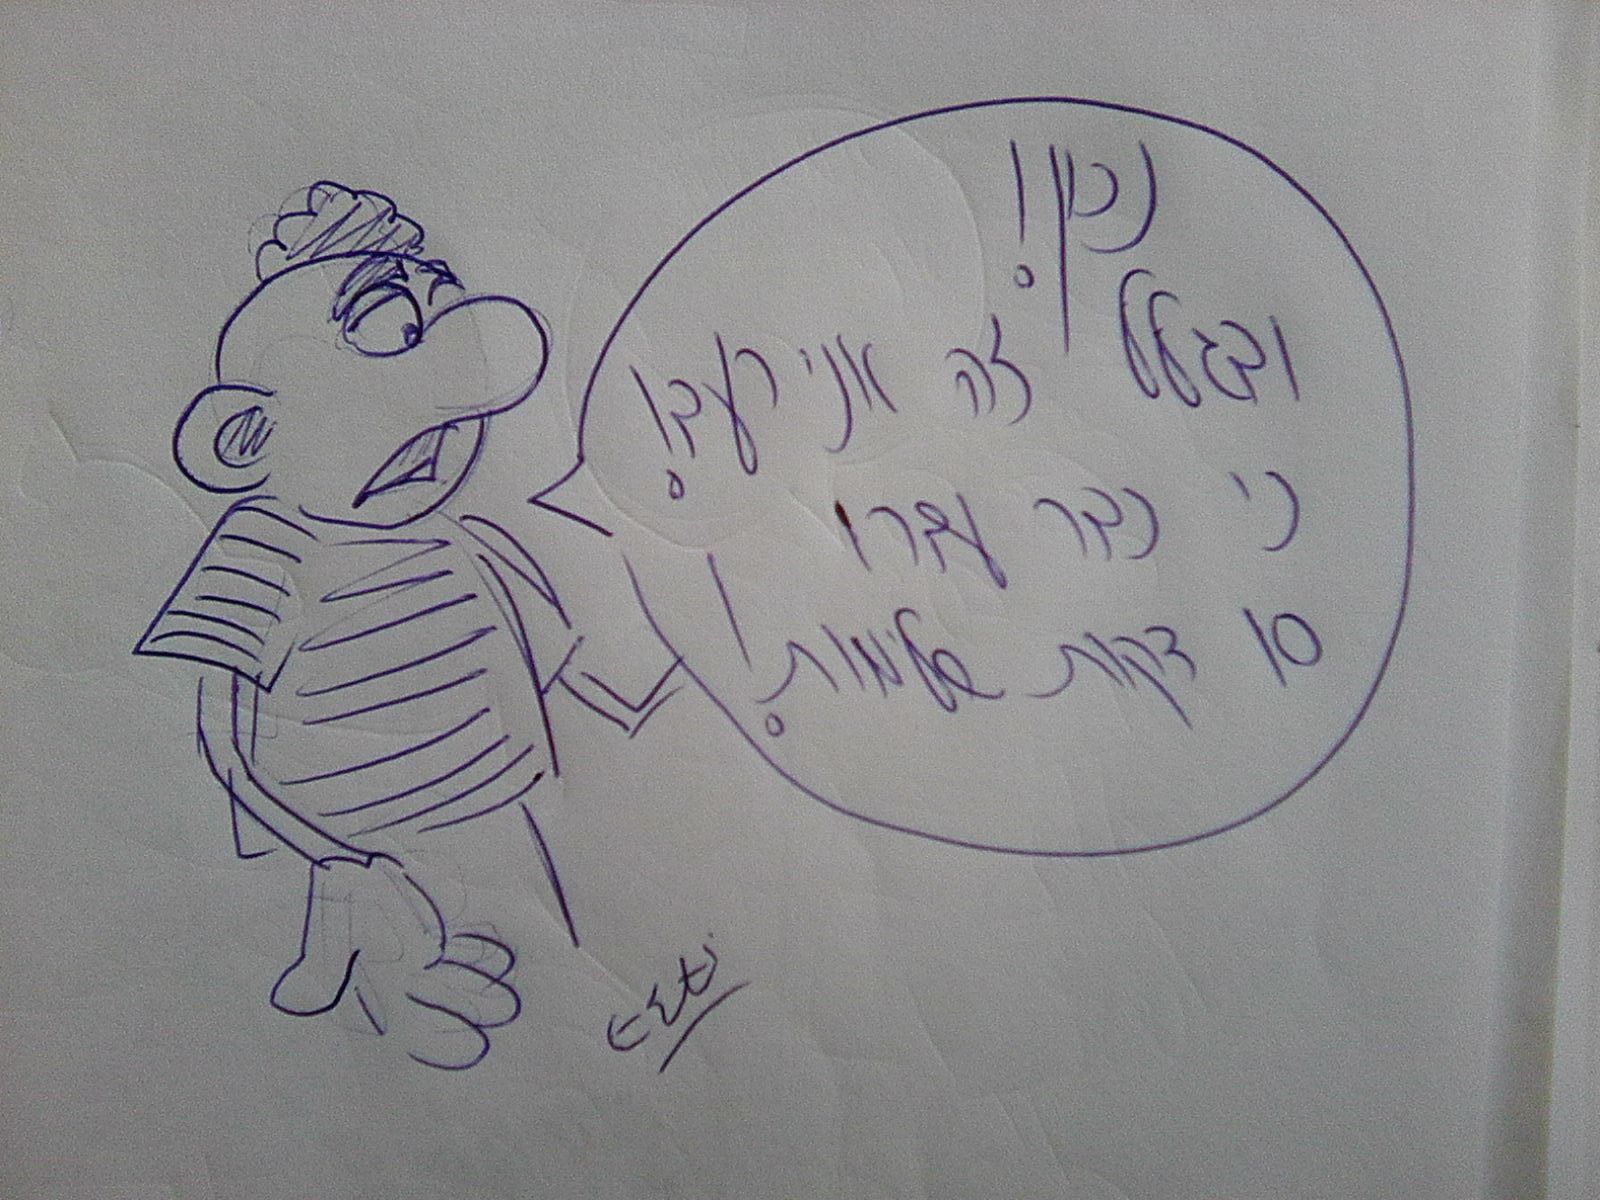 נכון!
ובגלל זה אני רעב!
כי כבר עברו
10 דקות שלימות!